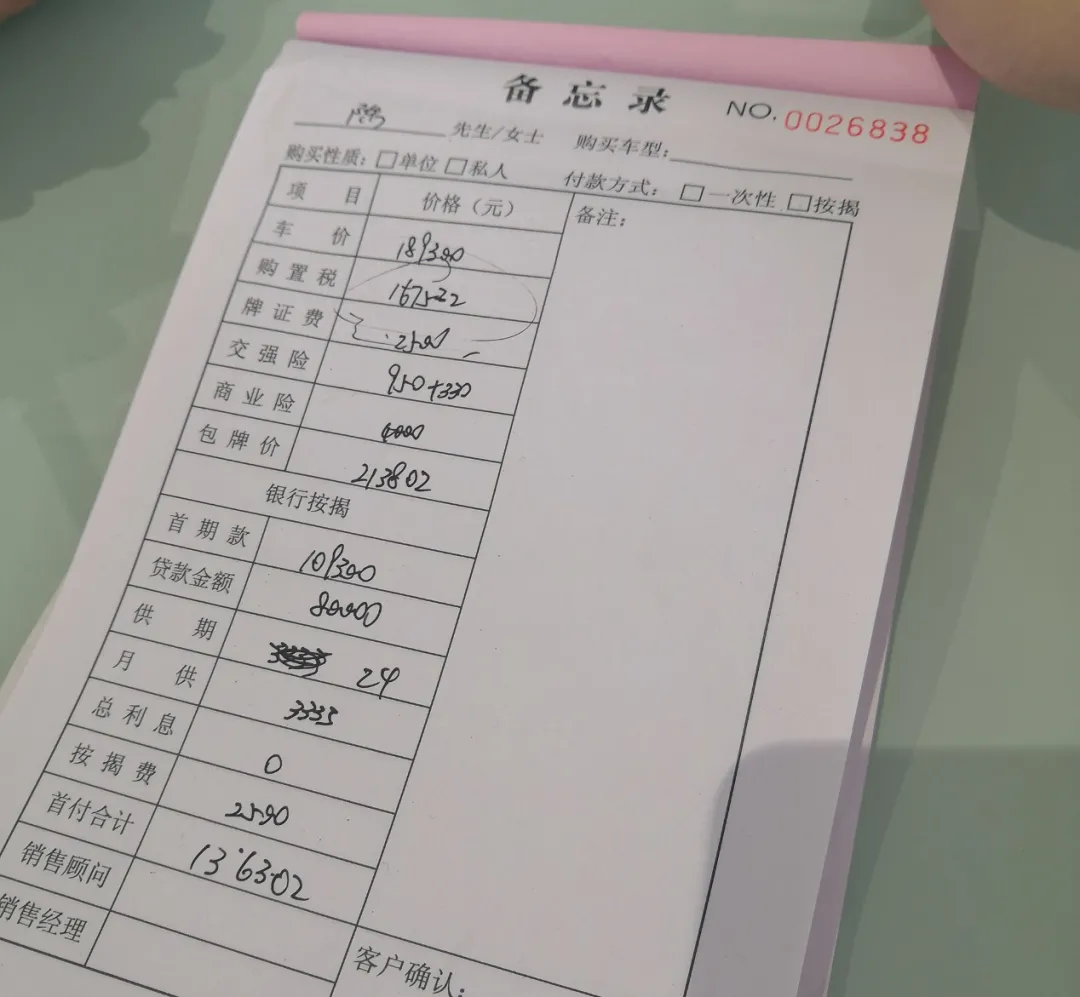 备忘录 NO. 0026838
先生/女士 购买车型:
购买性质: □单位 □私人 付款方式: □一次性 □按揭
项目 价格(元) 备注:
车价 189300
购置税 16722
牌证费 2500
交强险 950+330
商业险 4000
包牌价 213802
银行按揭
首期款 109300
贷款金额 80000
供期 24
月供 3333
总利息 0
按揭费 2500
首付合计 136302
销售顾问
销售经理
客户确认: